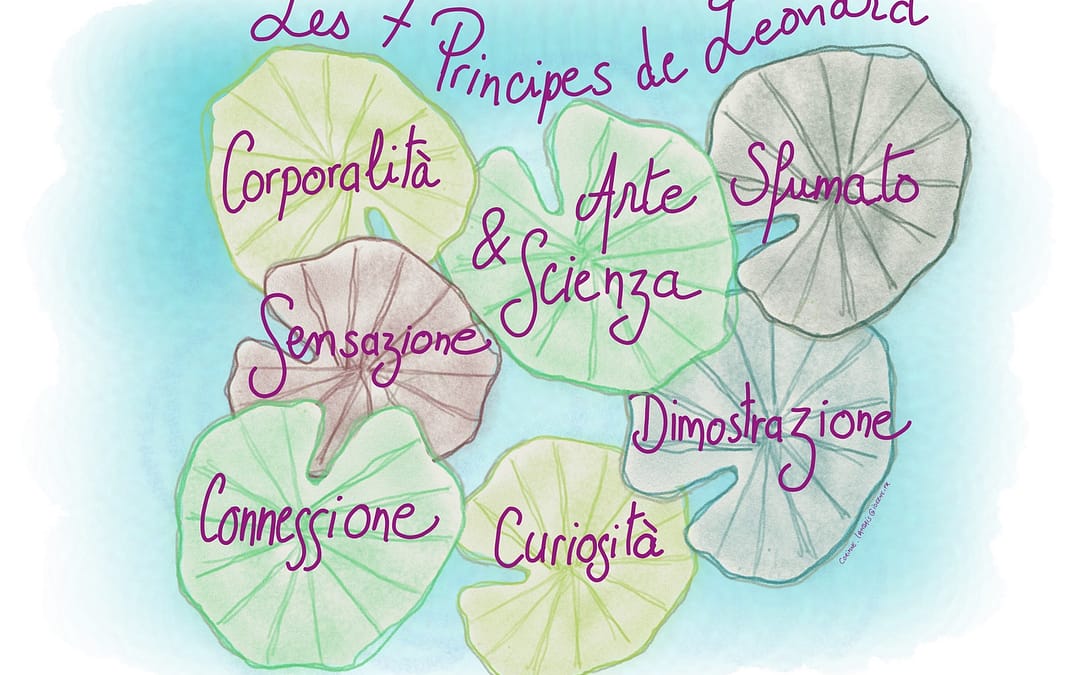 Les 7 Principes de Leonard
Corporalità
Arte
& Scienza
Sfumato
Sensazione
Dimostrazione
Connessione
Curiosità